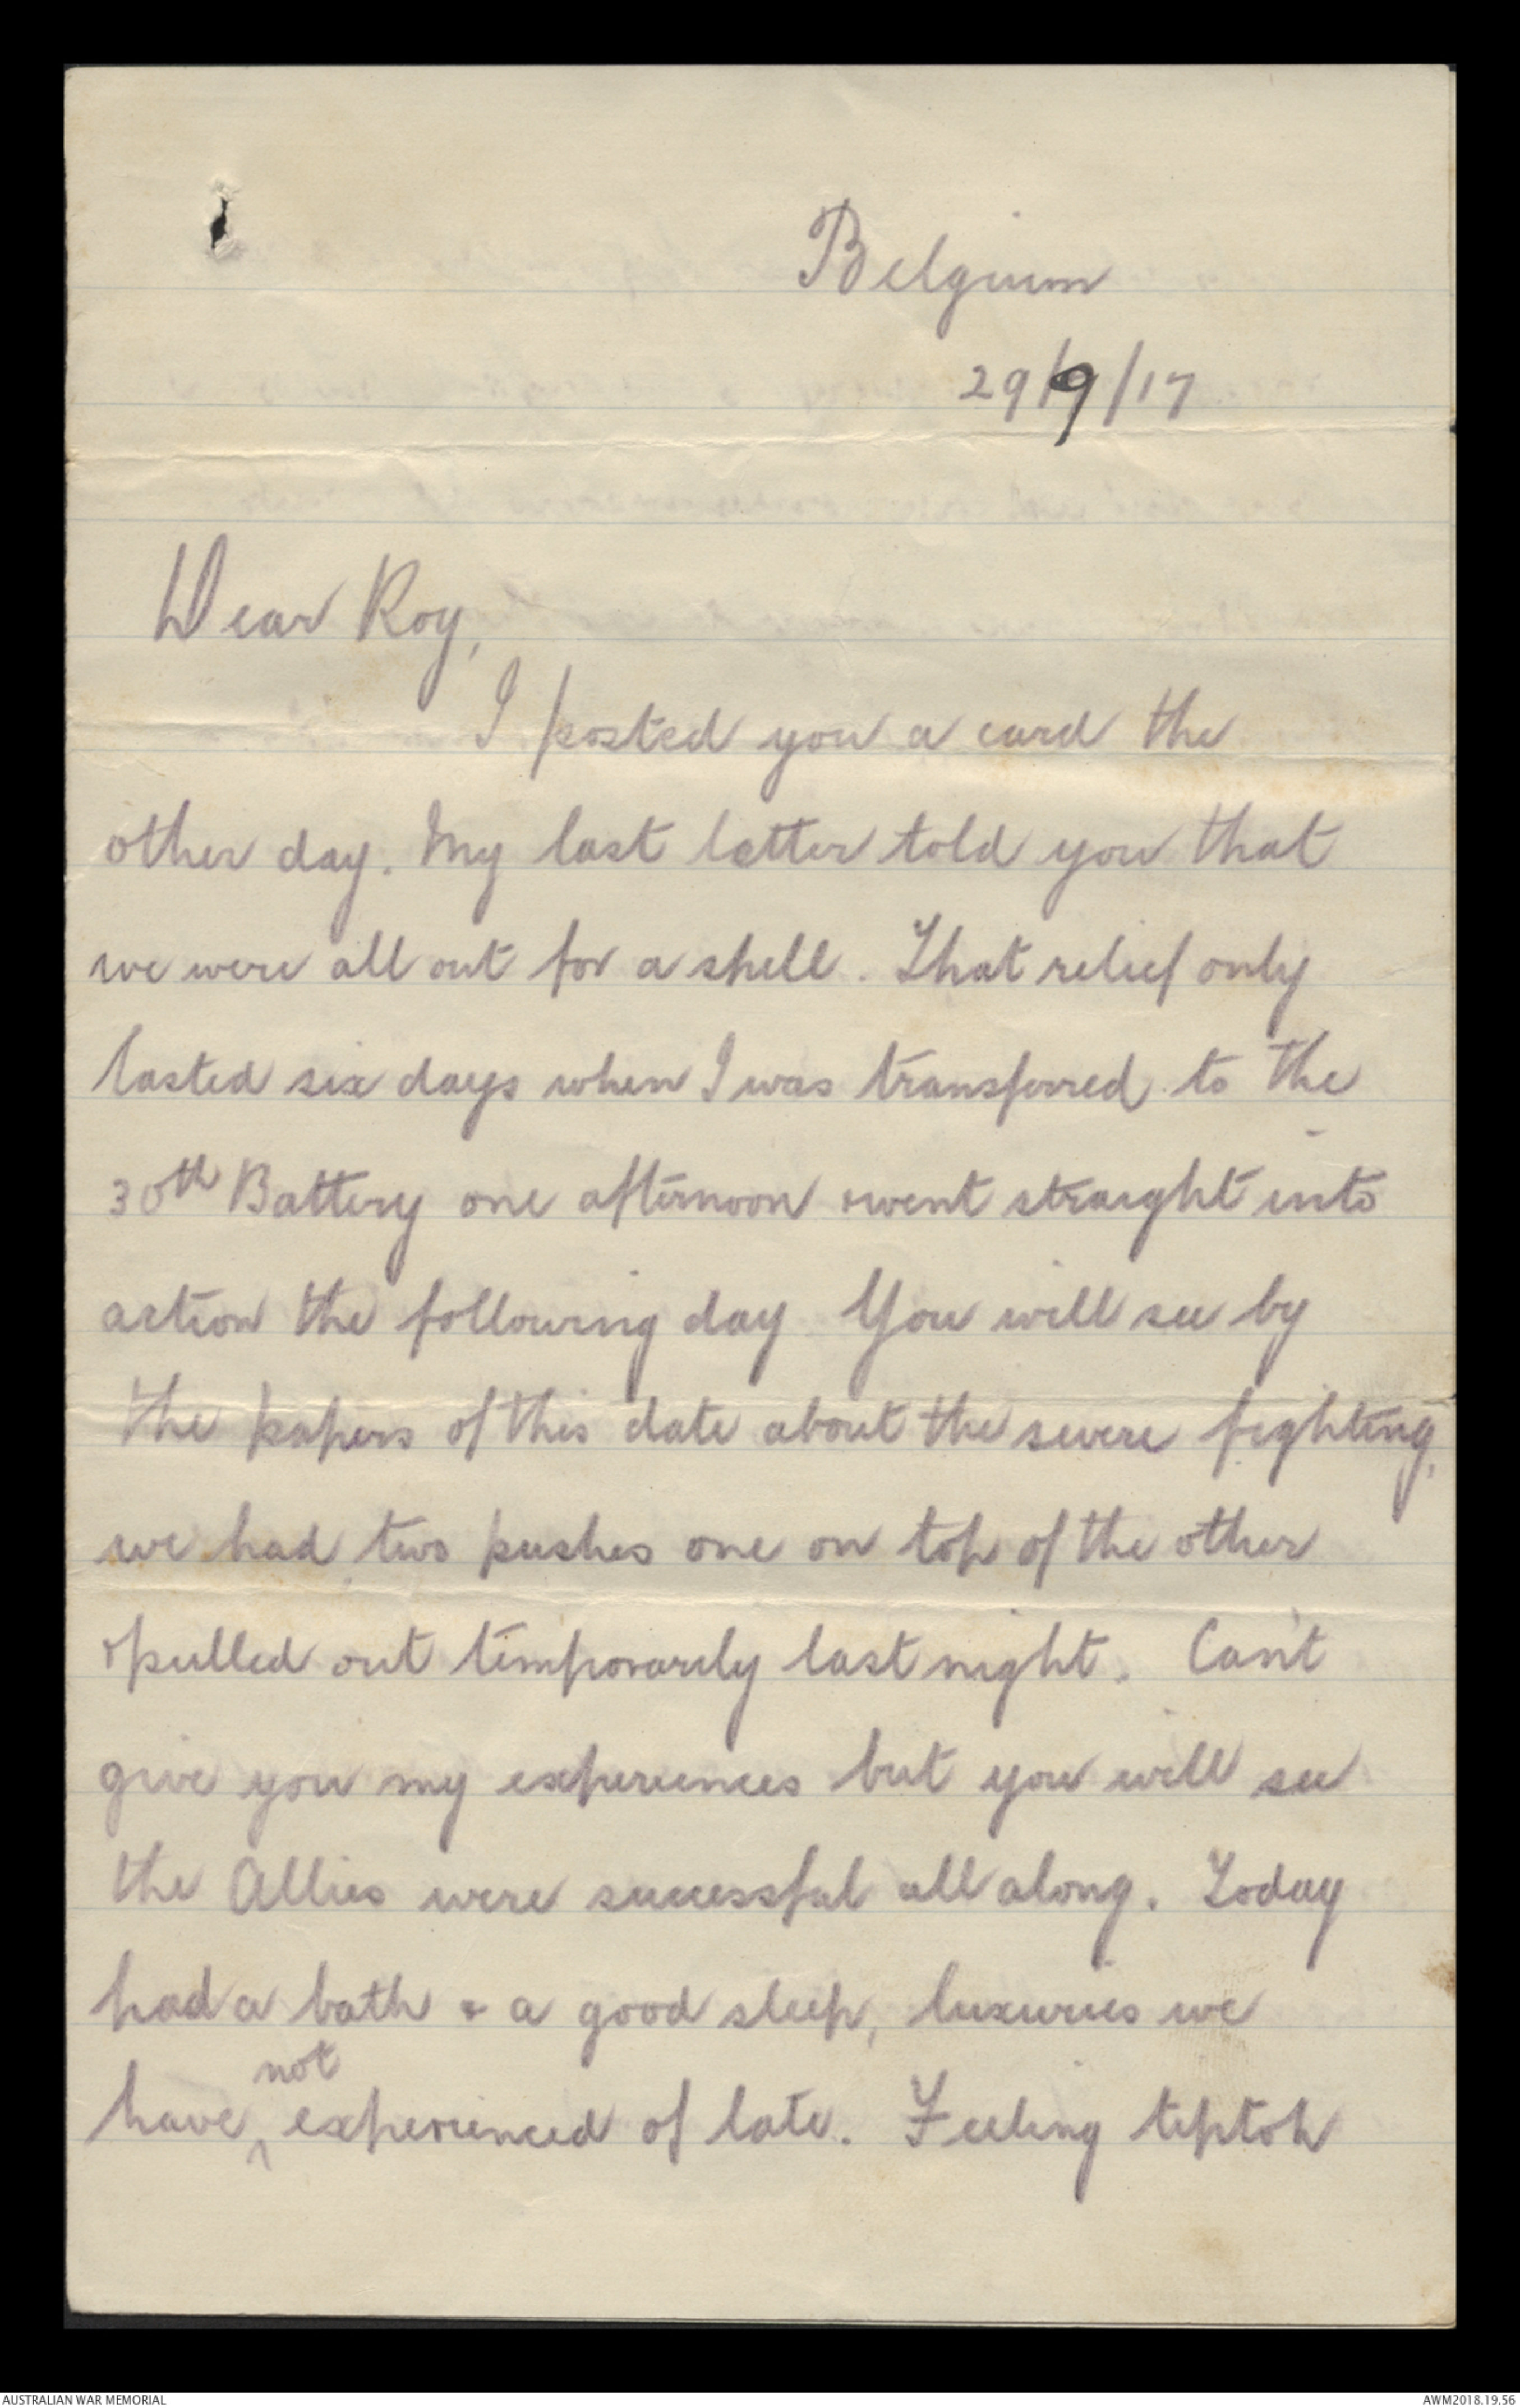 Belgium
29/9/17
Dear Roy,
I posted you a card the
other day. My last letter told you that
we were all out for a spell. That relief only
lasted six days when I was transferred to the
30th Battery one afternoon & went straight into
action the following day. You will see by
the papers of this date about the severe fighting,
we had two pushes one on top of the other
& pulled out temporarily last night. Can't
give you my experiences but you will see
the Allies were successful all along. Today
had a bath & a good sleep, luxuries we
have not experienced of late. Feeling tiptop
AUSTRALIAN WAR MEMORIAL
AWM2018.19.56